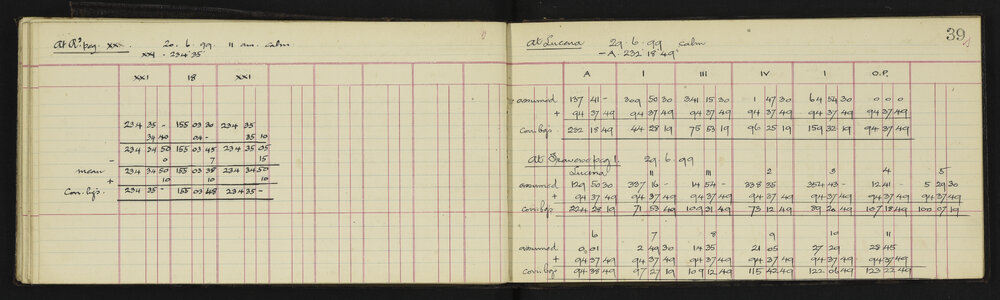 At R's peg XXI. 20. 6. 99. 11 am. calm
XXI - 234 35
XXI 18 XXI
234 35 - 155 03 30 234 35
34 40 04 - 35 10
234 34 50 155 03 45 234 35 05
- 0 7 15
mean 234 34 50 155 03 38 234 34 50
+ 10 10 10
Con. bgs. 234 35 - 155 03 48 234 35 -
39
At Lucena 29. 6. 99 calm
- A. 232 18 49
A I III IV I O.P.
assumed 137 41 - 309 50 30 341 15 30 1 47 30 64 54 30 0 0 0
+ 94 37 49 94 37 49 94 37 49 94 37 49 94 37 49 94 37 49
Con. bgs. 232 18 49 44 28 19 75 53 19 96 25 19 159 32 19 94 37 49
At Traverse peg 1. 29. 6. 99
Lucena II III 2 3 4 5
assumed 129 50 30 337 16 - 14 54 - 338 35 354 43 - 12 41 - 5 29 30
+ 94 37 49 94 37 49 94 37 49 94 37 49 94 37 49 94 37 49 94 37 49
Con. bgs 224 28 19 71 53 49 109 31 49 73 12 49 89 20 49 107 18 49 100 07 19
6 7 8 9 10 11
assumed 0 01 2 49 30 14 35 21 05 27 29 28 45
+ 94 37 49 94 37 49 94 37 49 94 37 49 94 37 49 94 37 49
Con. bgs 94 38 49 97 27 19 109 12 49 115 42 49 122 06 49 123 22 49